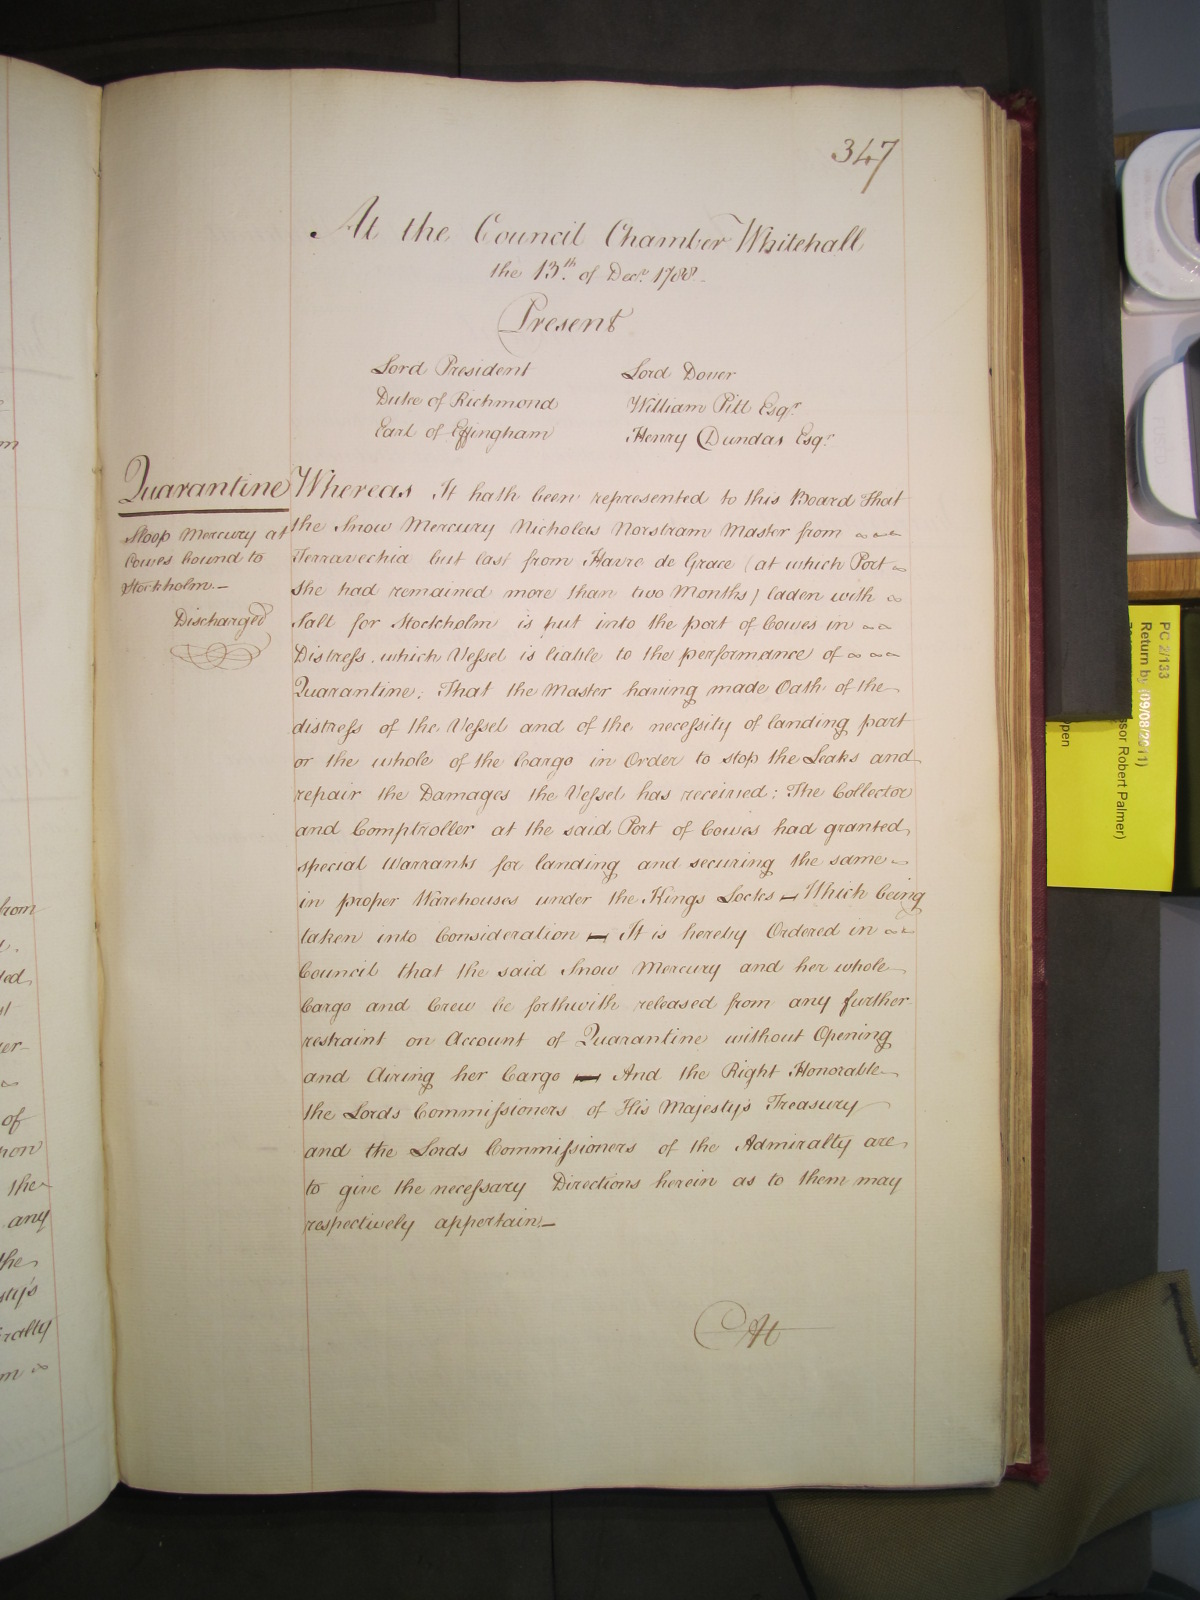 347
At the Council Chamber Whitehall
the 13th of Decr. 1788.
Present
Lord President
Duke of Richmond
Earl of Effingham
Lord Dover
William Pitt Esqr.
Henry Dundas Esqr.
Quarantine
Sloop Mercury at
Cowes bound to
Stockholm.—
Discharged
Whereas It hath been represented to this Board That
the Snow Mercury Nicholas Norstram Master from
Terravechia but last from Havre de Grace (at which Port
She had remained more than two Months) laden with
Salt for Stockholm is put into the port of Cowes in
Distress, which Vessel is liable to the performance of
Quarantine; That the Master having made Oath of the
distress of the Vessel and of the necessity of landing part
or the whole of the Cargo in Order to stop the Leaks and
repair the Damages the Vessel has received; The Collector
and Comptroller at the said Port of Cowes had granted
special Warrants for landing and securing the same
in proper Warehouses under the Kings Locks — Which being
taken into Consideration — It is hereby Ordered in
Council that the said Snow Mercury and her whole
Cargo and Crew be forthwith released from any further
restraint on Account of Quarantine without Opening
and Airing her Cargo — And the Right Honorable
the Lords Commissioners of His Majesty's Treasury
and the Lords Commissioners of the Admiralty are
to give the necessary Directions herein as to them may
respectively appertain.—
from
of
the
any
the
PC 2/133
Return by (09/08/2011)
ssor Robert Palmer)